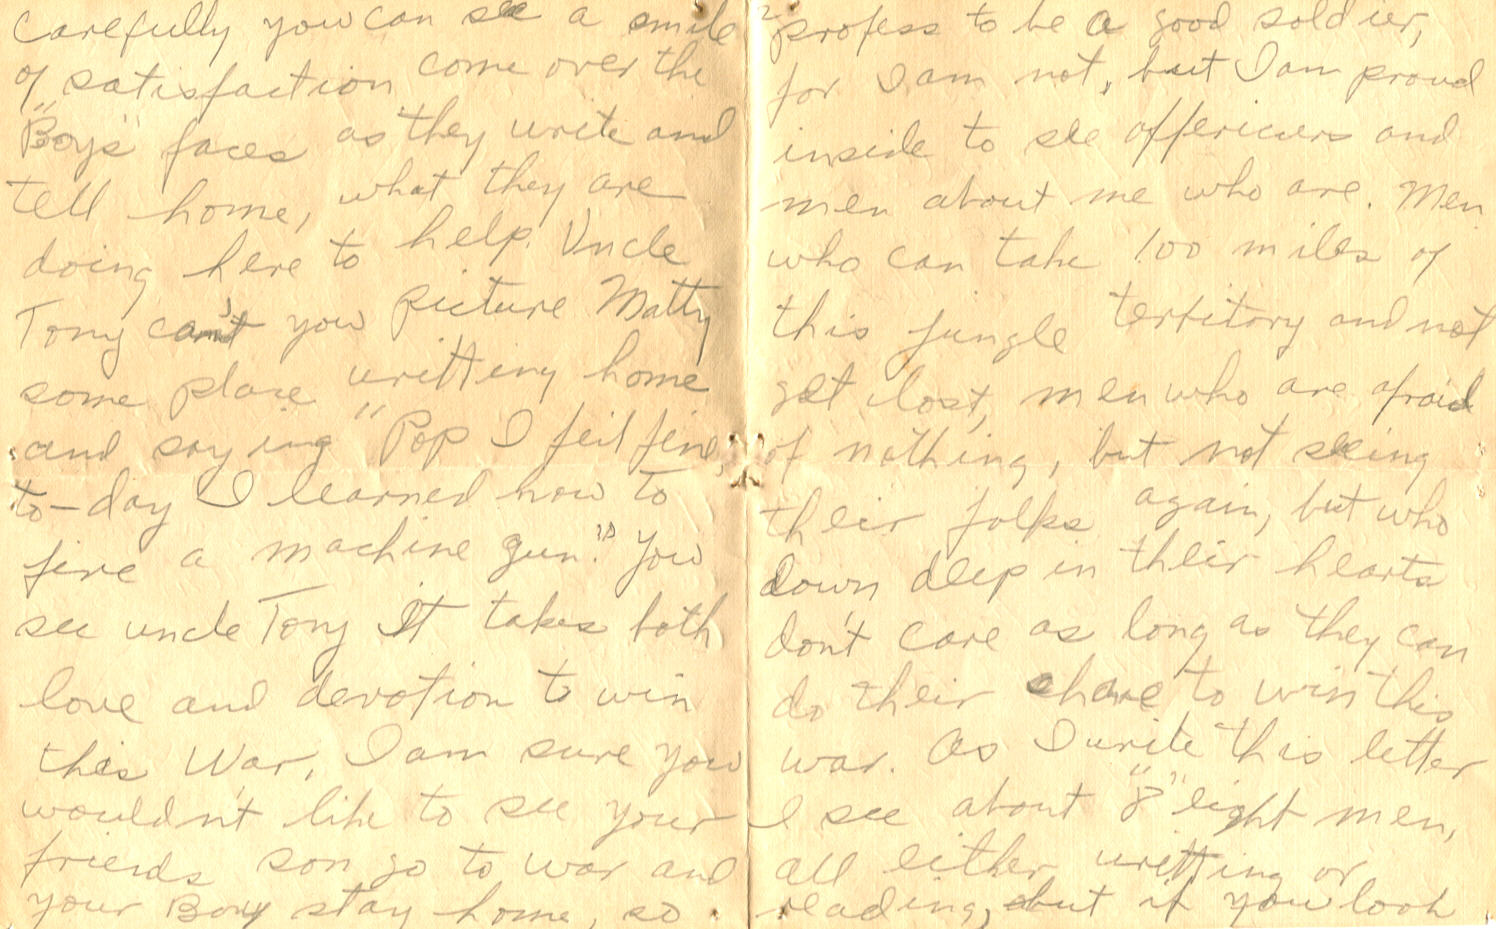 Carefully you can see a smile
of satisfaction come over the
"Boys" faces as they write and
tell home, what they are
doing here to help. Uncle
Tony can't you picture Matty
some place writting home
and saying "Pop I feil fine,
to-day I learned how to
fire a machine gun." You
see uncle Tony It takes both
love and devotion to win
this War, I am sure you
wouldn't like to see your
friends son go to war and
your Boy stay home, so
2 profess to be a good soldier,
for I am not, but I am proud
inside to see offericers and
men about me who are. Men
who can take 100 miles of
this jungle terbitory and not
get lost, men who are afraid
of nothing, but not seeing
their folks again, but who
down deep in their hearts
don't care as long as they can
do their share to win this
war. As I write this letter
I see about "8" eight men,
all either writting or
reading, but if you look